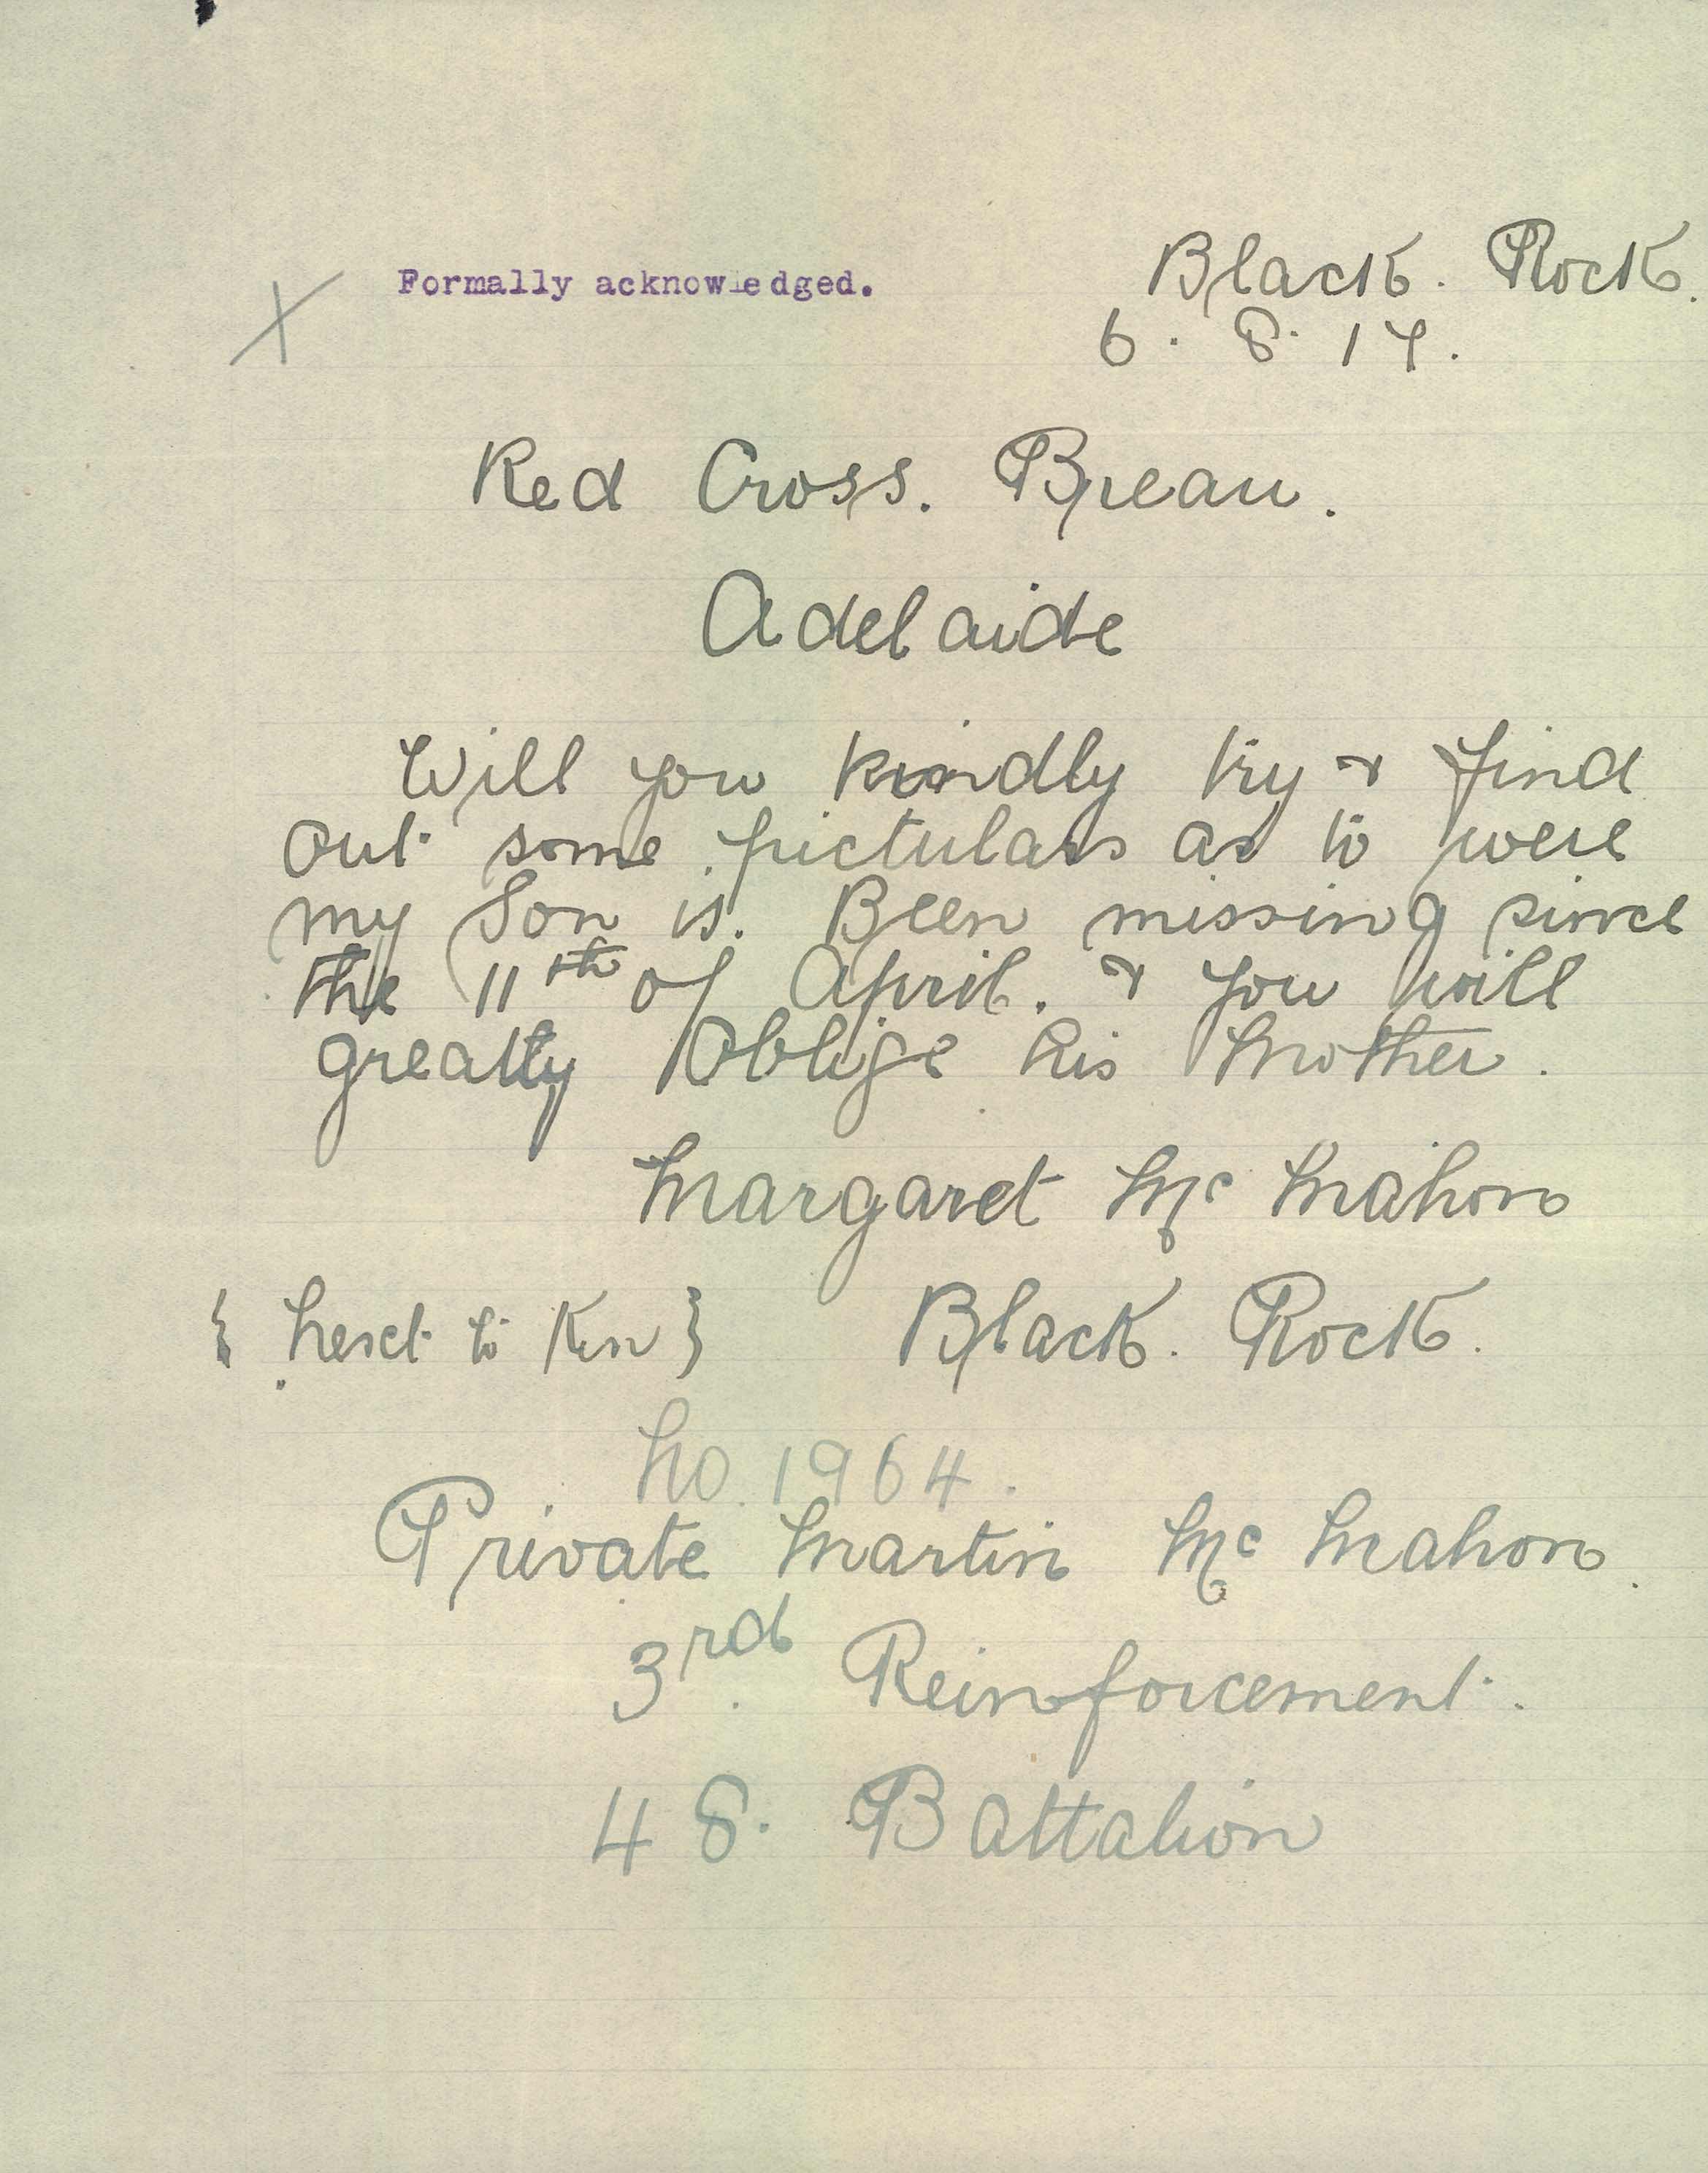 Formally acknowledged.
Black. Rock.
6. 8. 17.
Red Cross. Breau.
Adelaide
Will you kindly try & find
out some pictulars as to were
my Son is. Been missing since
the 11th of April. & you will
greatly Oblige his Mother.
Margaret Mc Mahon
{ Next to Kin } Black. Rock.
No. 1964.
Private Martin Mc Mahon.
3rd. Reinforcement.
48. Battalion